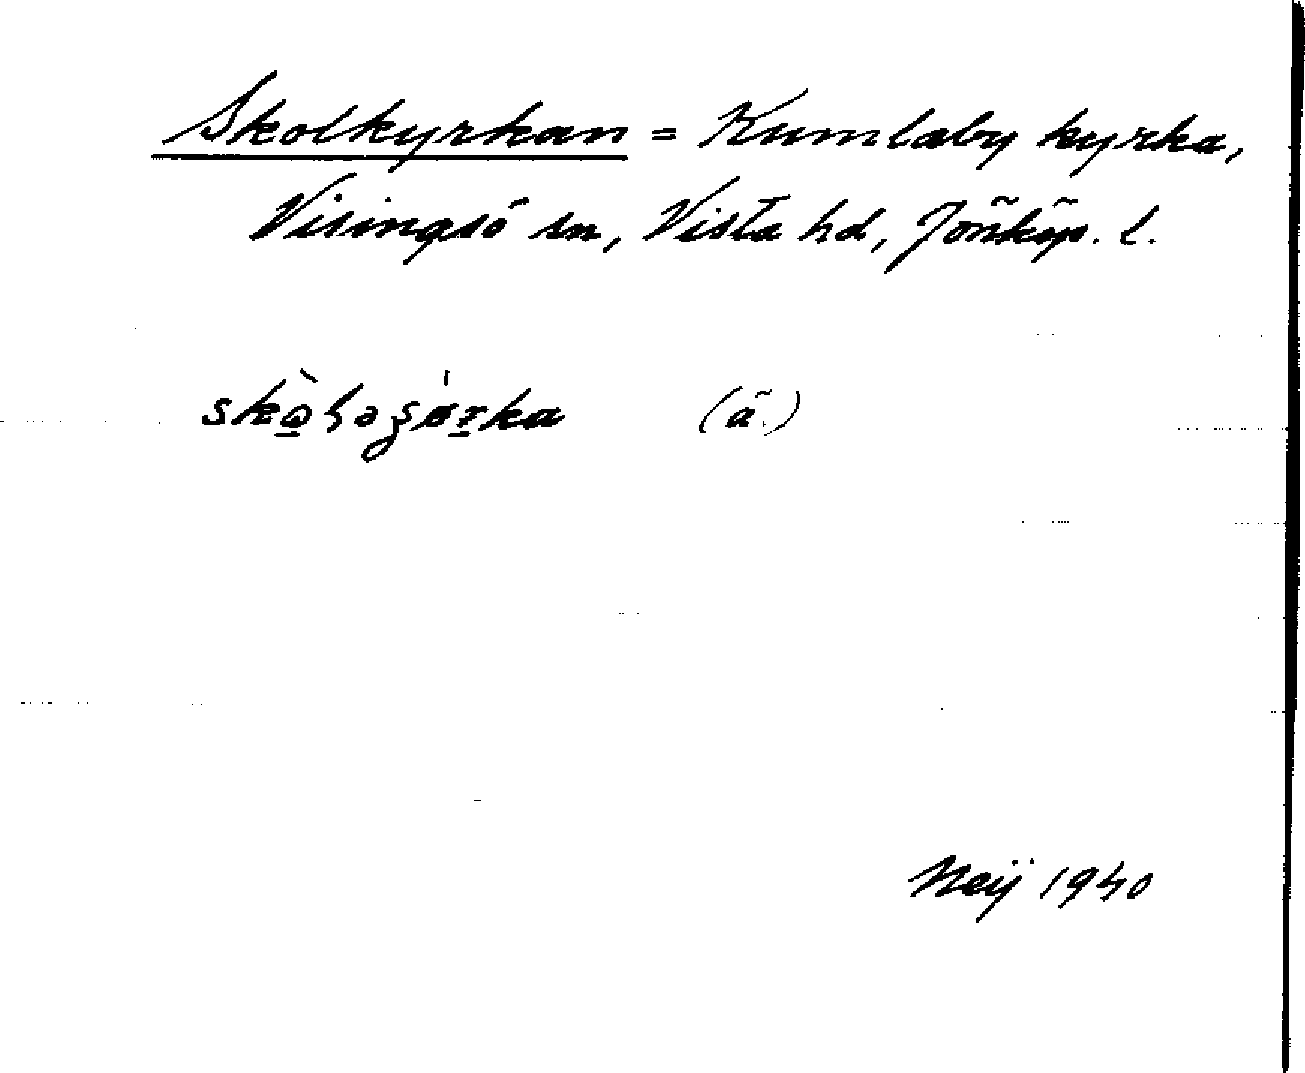 Skolkyrkan = Kumlaby kyrka,
Visingsö sn, Vista hd, Jönköp. l.
(ä.)
Neij 1940